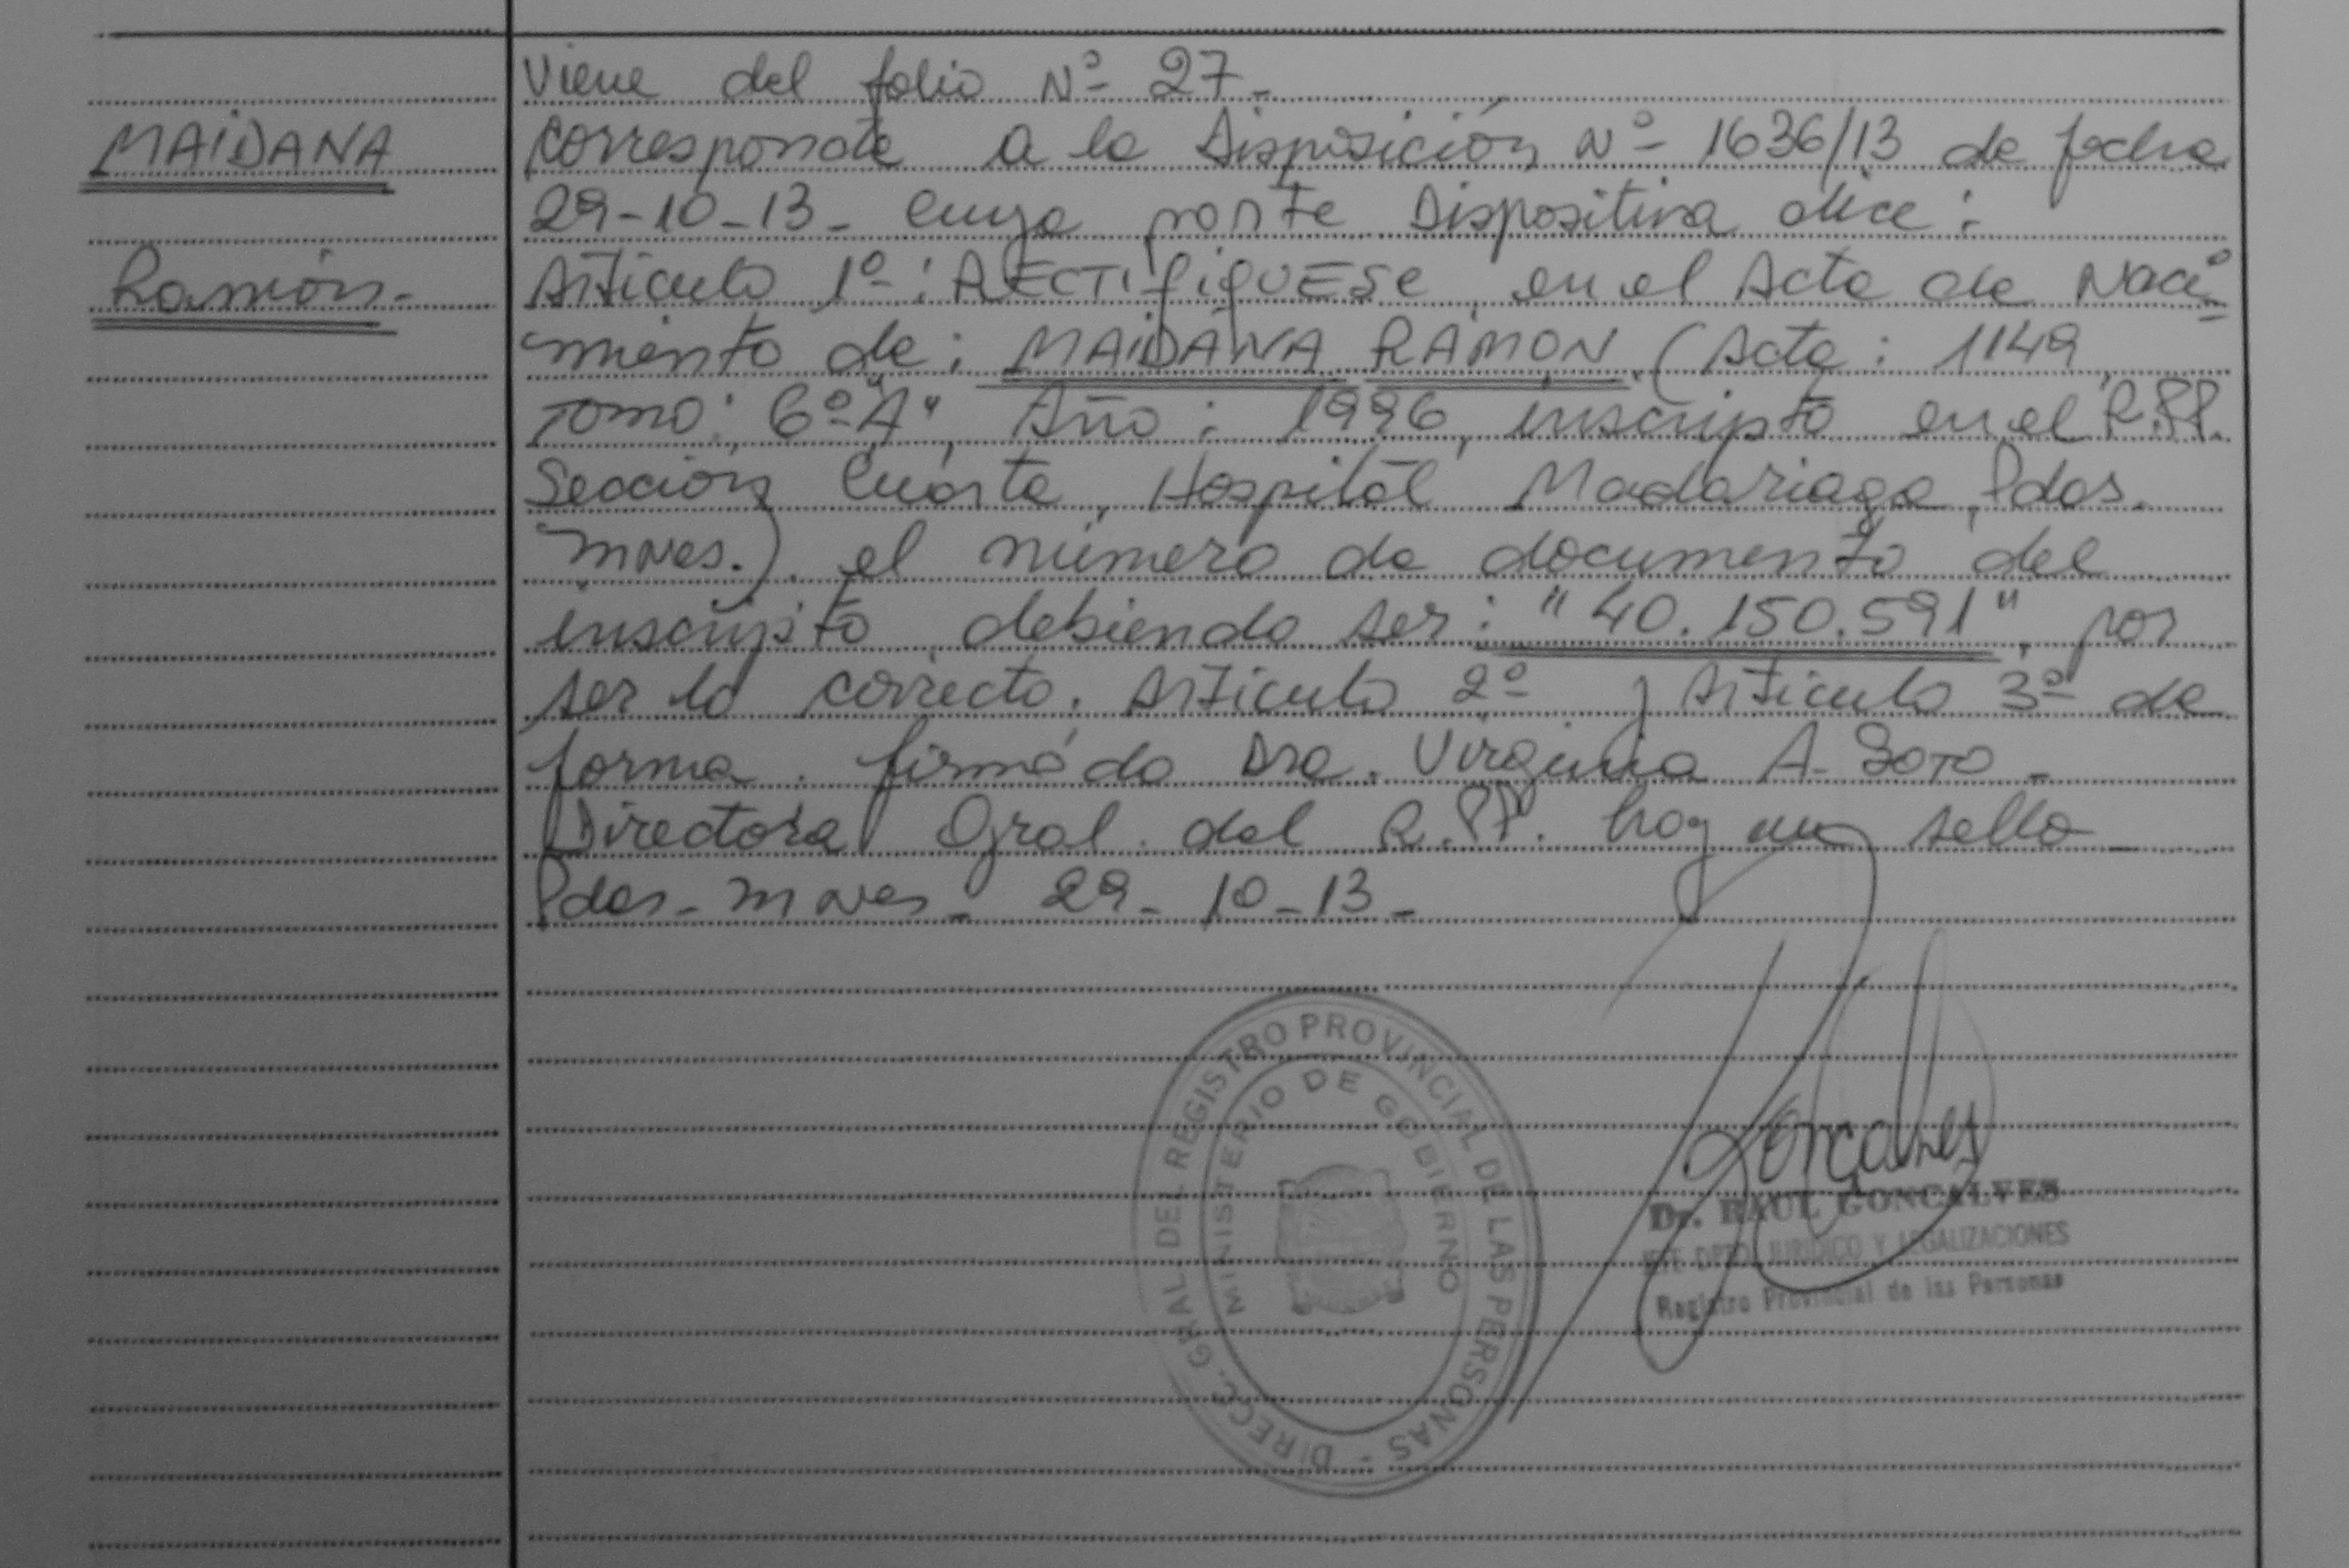 Viene del folio Nº 27-
MAIDANA
corresponde a la Disposición Nº 1636/13 de fecha
29-10-13- cuya parte Dispositiva dice:
Ramón-
Artículo 1º: RECTIFIQUESE, en el Acta de Naci-
miento de: MAIDANA RAMON (Acta: 1149,
Tomo: 6º "A", Año: 1996, inscripto en el R.P.P.
Sección Cuarta, Hospital Madariaga, Pdas.
Mnes.). el número de documento del
inscripto, debiendo ser: "40.150.591", por
ser lo correcto. Artículo 2º y Artículo 3º de
forma. firmado Dra. Virginia A. Soto-
Directora Gral. del R.P.P. hay un sello-
Pdas- Mnes- 29-10-13-
DIRECC. GRAL DEL REGISTRO PROVINCIAL DE LAS PERSONAS -
MINISTERIO DE GOBIERNO
Goncalves
Dr. RAUL GONCALVES
JEFE DPTO. JURIDICO Y LEGALIZACIONES
Registro Provincial de las Personas